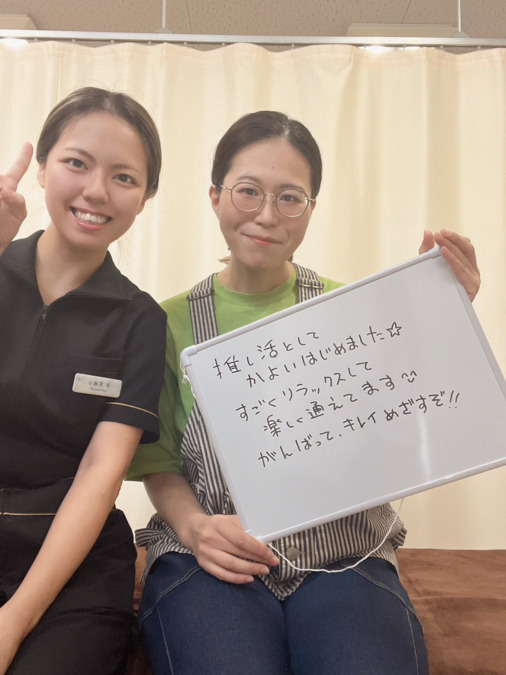 推し活として
かよいはじめました☆
すごくリラックスして
楽しく通えてます
がんばって、キレイめざすぞ!!